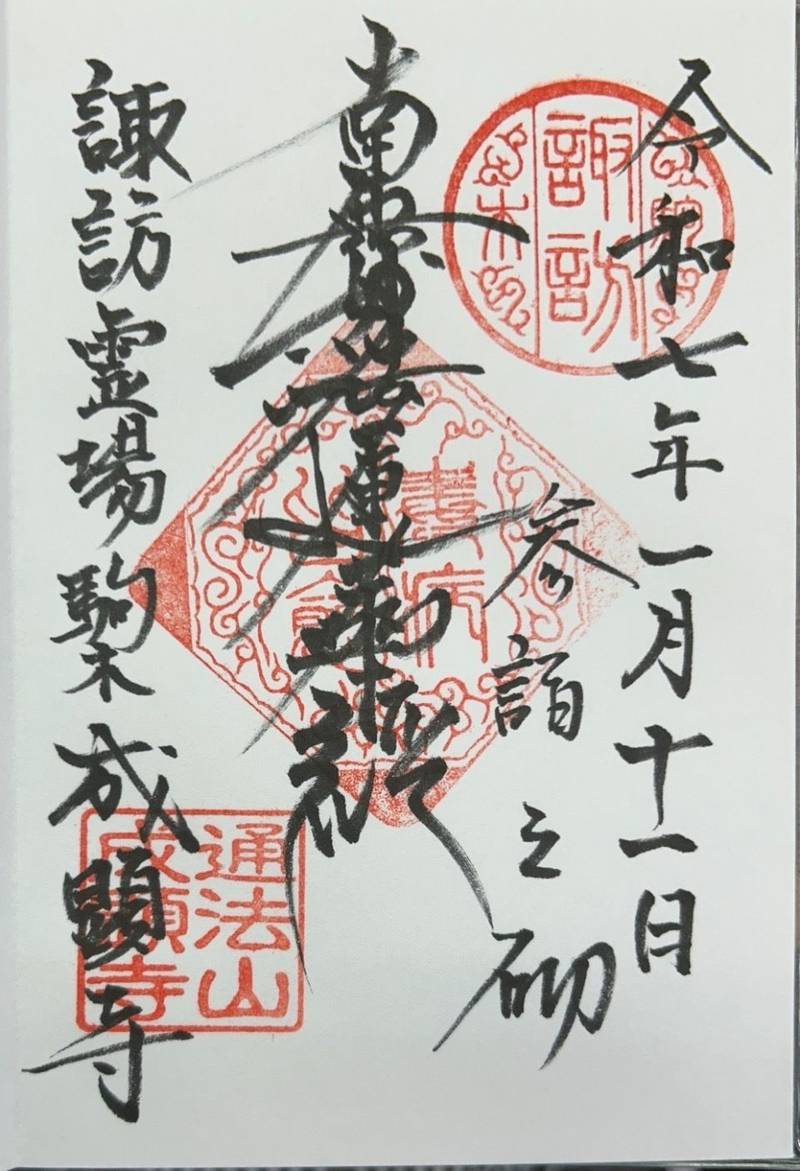 令和七年一月十一日
参詣之砌
南無妙法蓮華経
諏訪霊場駒木成顕寺
諏訪
通法山
成顕寺